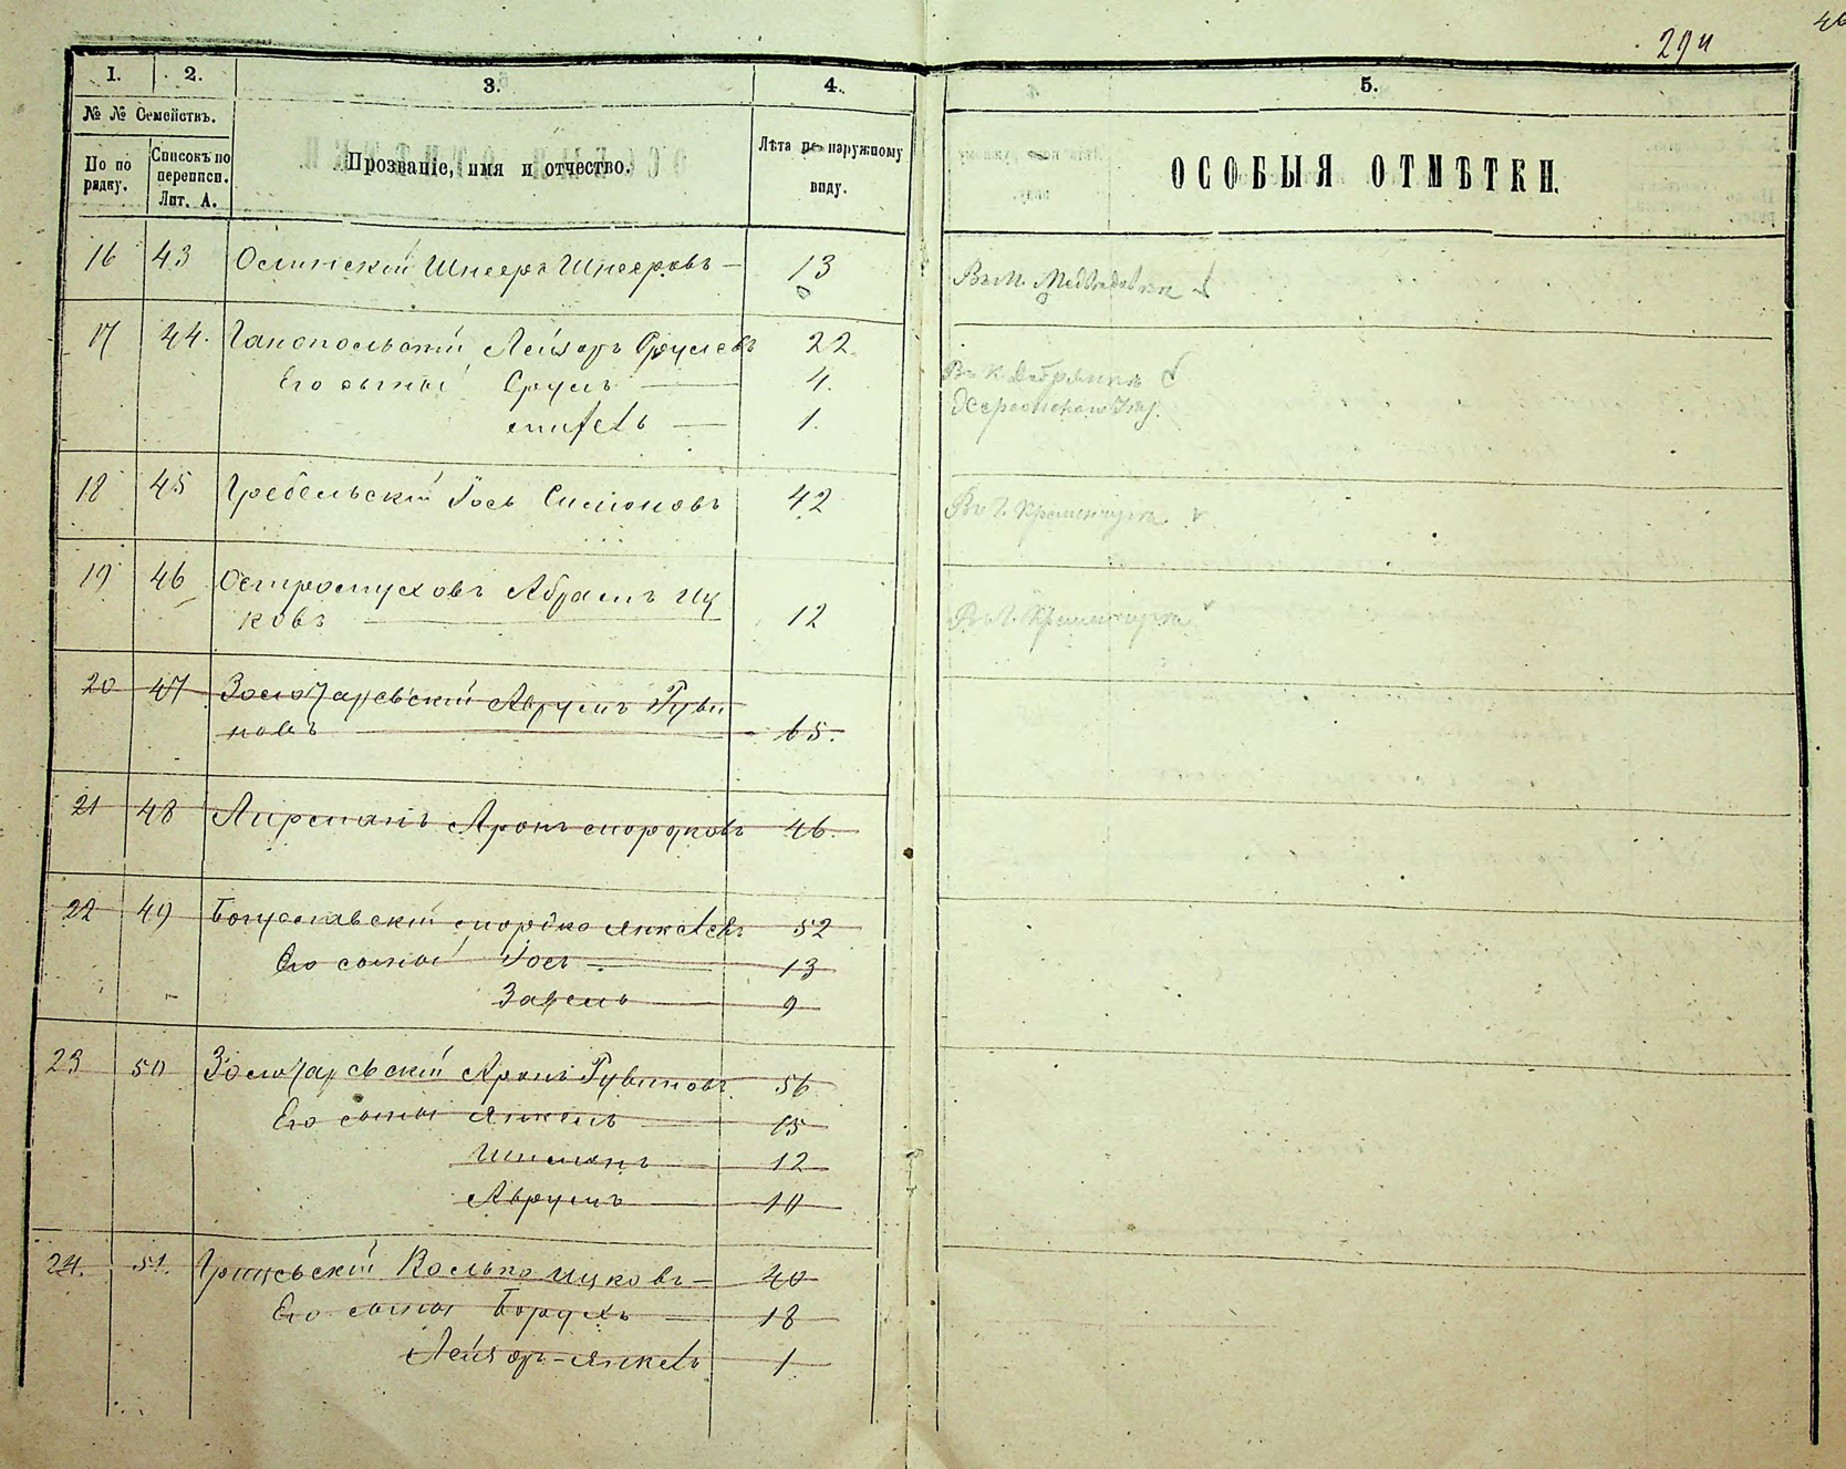 294
46
1. 2. 3. 4. 5.
№ № Семействъ.
По по рядку. Списокъ по переписи. Лит. А. Прозваніе, имя и отчество. Лѣта по наружному виду. ОСОБЫЯ ОТМѢТКИ.
16 43 Осинскій Шнееръ Шнееровъ — 13 Въ м. Медведовке
17 44. Ганопольскій Лейзоръ Сруловъ 22
Его сыны Сруль — 4. Въ к. Добрянке
— 1. Херсонской губ.
18 45 Гребельскій Іось Симоновъ 42 Въ г. Кременчуга
19 46 Остромуховъ Абрамъ Иц
ковъ — 12 Въ г. Кременчуга
20 47 Золотаревскій Аврумъ Руви
новъ — 65.
21 48 Лирманъ Аронъ Мордковъ 46.
22 49 Богуславскій Мордко Янкелевъ 52
Его сыны Іось — 13
9
23 50 Золотаревскій Аронъ Рувиновъ 56
Его сыны Янкель 15
Шимонъ — 12
Аврумъ — 10
24. 51. Волько Ицковъ — 40
Его сыны Борухъ — 18
Лейзоръ-Янкель 1